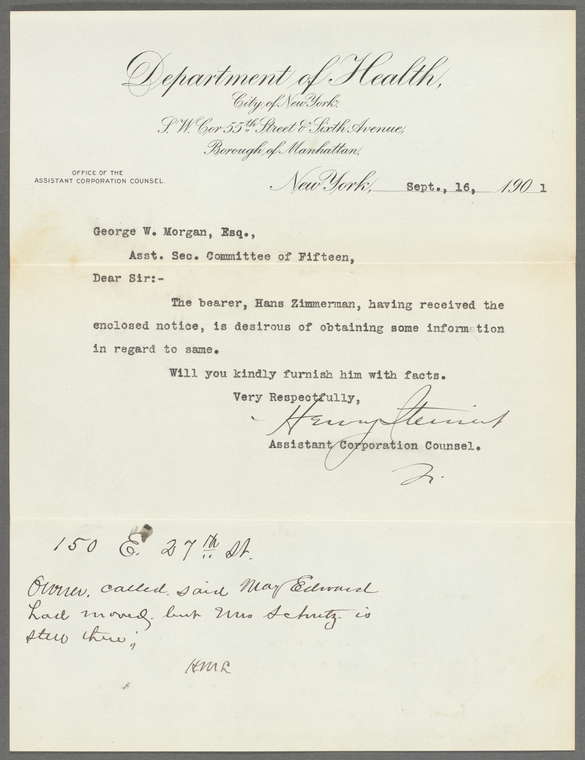 Department of Health,
City of New York.
S. W. Cor 55th Street & Sixth Avenue,
Borough of Manhattan,
OFFICE OF THE
ASSISTANT CORPORATION COUNSEL.
New York, Sept., 16, 190 1
George W. Morgan, Esq.,
Asst. Sec. Committee of Fifteen,
Dear Sir:-
The bearer, Hans Zimmerman, having received the
enclosed notice, is desirous of obtaining some information
in regard to same.
Will you kindly furnish him with facts.
Very Respectfully,
Henry Steinert
Assistant Corporation Counsel.
150 E. 27th St.
Owner. called. said May Edward
had moved, but Mrs Schutz is
still there.